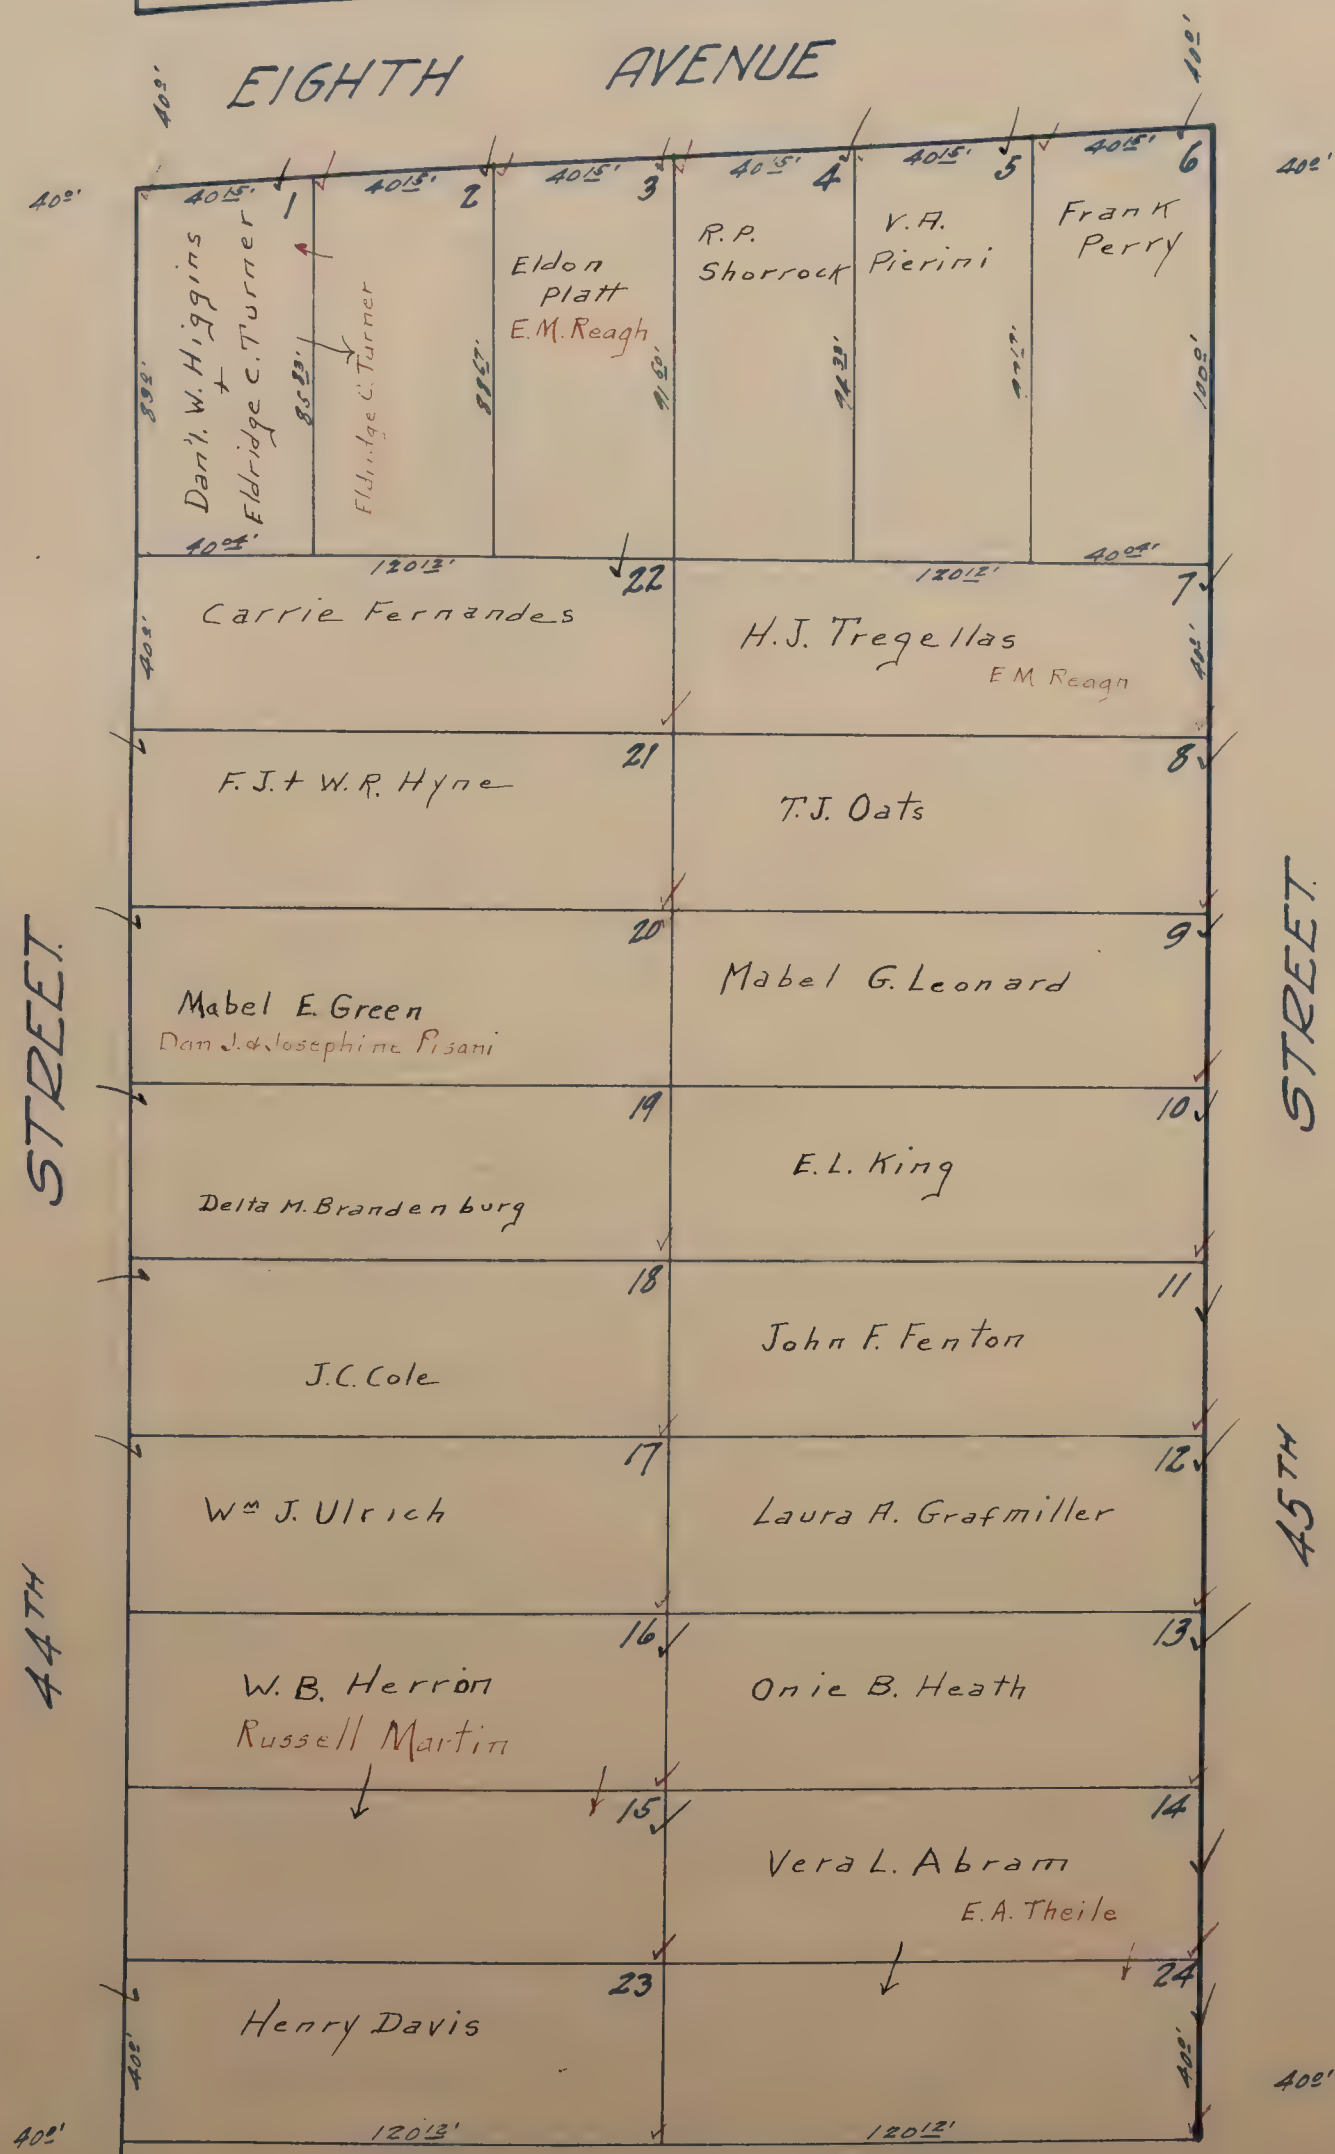 EIGHTH AVENUE
40º'
40º'
40º'
40º'
40¹⁵'
1
40¹⁵'
2
40¹⁵'
3
40¹⁵'
4
40¹⁵'
5
40¹⁵'
6
Dan'l. W. Higgins
+
Eldridge C. Turner
Eldridge C. Turner
Eldon
Platt
E.M. Reagh
R.P.
Shorrock
V.A.
Pierini
Frank
Perry
83º'
85⁸³'
88⁶⁷'
91⁵⁰'
94³³'
97¹⁷'
100º'
40⁰⁴'
120¹²'
22
120¹²'
40⁰⁴'
7
Carrie Fernandes
H.J. Tregellas
E M Reagh
40º'
40º'
21
8
F.J. + W.R. Hyne
T.J. Oats
20
9
Mabel E. Green
Dan J. & Josephine Pisani
Mabel G. Leonard
19
10
Delta M. Brandenburg
E.L. King
18
11
J.C. Cole
John F. Fenton
17
12
Wᵐ J. Ulrich
Laura A. Grafmiller
16
13
W.B. Herron
Russell Martin
Onie B. Heath
15
14
Vera L. Abram
E.A. Theile
23
24
Henry Davis
40º'
40º'
120¹²'
120¹²'
40º'
40º'
44TH STREET.
45TH STREET.